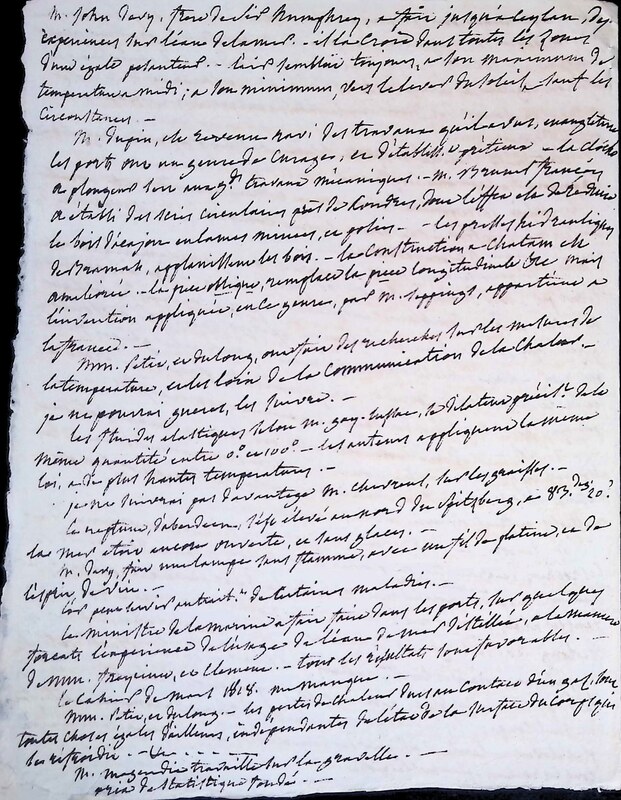 M. John Davy, frere de Sir Humphrey, a fait jusqu'a Ceylan, des
experiences sur l'eau de la mer. - il la croit dans toutes les zones
d'une egale pesanteur. - l'air sembloit toujours, a son maximum de
temperature a midi; a son minimum, vers le lever du soleil, sauf les
circonstances. -
M. Dupin, est revenu ravi des travaux qu'il a vus, en angleterre
les ports ont un genre de curages, et d'etabliss. - la cloche
a plongeur sert aux gds travaux mécaniques. - M. Brunel français
a établi des scies circulaires près de Londres, dont l'effet est de reduire
le bois d'acajou en lames minces, et polies. - les presses hidrauliques
de Bramah, applanissent les bois. - la construction a Chatam est
améliorée. - la pièce oblique, remplace la pièce longitudinale mais
l'invention appliquée, en ce genre, par M. Seppings, appartient a
la france. -
MM. Petit, et dulong, ont fait des recherches, sur les mesures de
la temperature, et les loix de la communication de la chaleur. -
je ne pourrai gueres, les suivre. -
les fluides elastiques selon M. gay-lussac, se dilatent précist. de la
même quantité entre 0.° et 100°. - les auteurs appliquent la même
loi, a de plus hautes temperatures. -
je ne suivrai pas davantage M. Chevreul, sur les graisses. -
le neptune, d'aberdeen, s'est élevé au nord du Spitzberg, a 83.° 20'
la mer étoit encore ouverte, et sans glaces. -
M. Davy, fait une lampe sans flamme, avec un fil de platine, et de
l'esprit de vin. -
l'or peut servir au trait.t de certaines maladies. -
le ministre de la marine a fait faire dans les ports, sur quelques
forcats l'experience de l'usage de l'eau de mer distillée, a la maniere
de MM. freycinet, et Clement. - tous les résultats sont favorables. -
le Cahier de Mars 1818. me manque. -
MM. Petit, et dulong - les pertes de chaleur dues au contact d'un gaz, sont
toutes choses egales d'ailleurs, independantes de l'état de la surface du corps qui
se refroidit. -
M. magendie travaille sur la gravelle. -
prix de statistique fondé. -